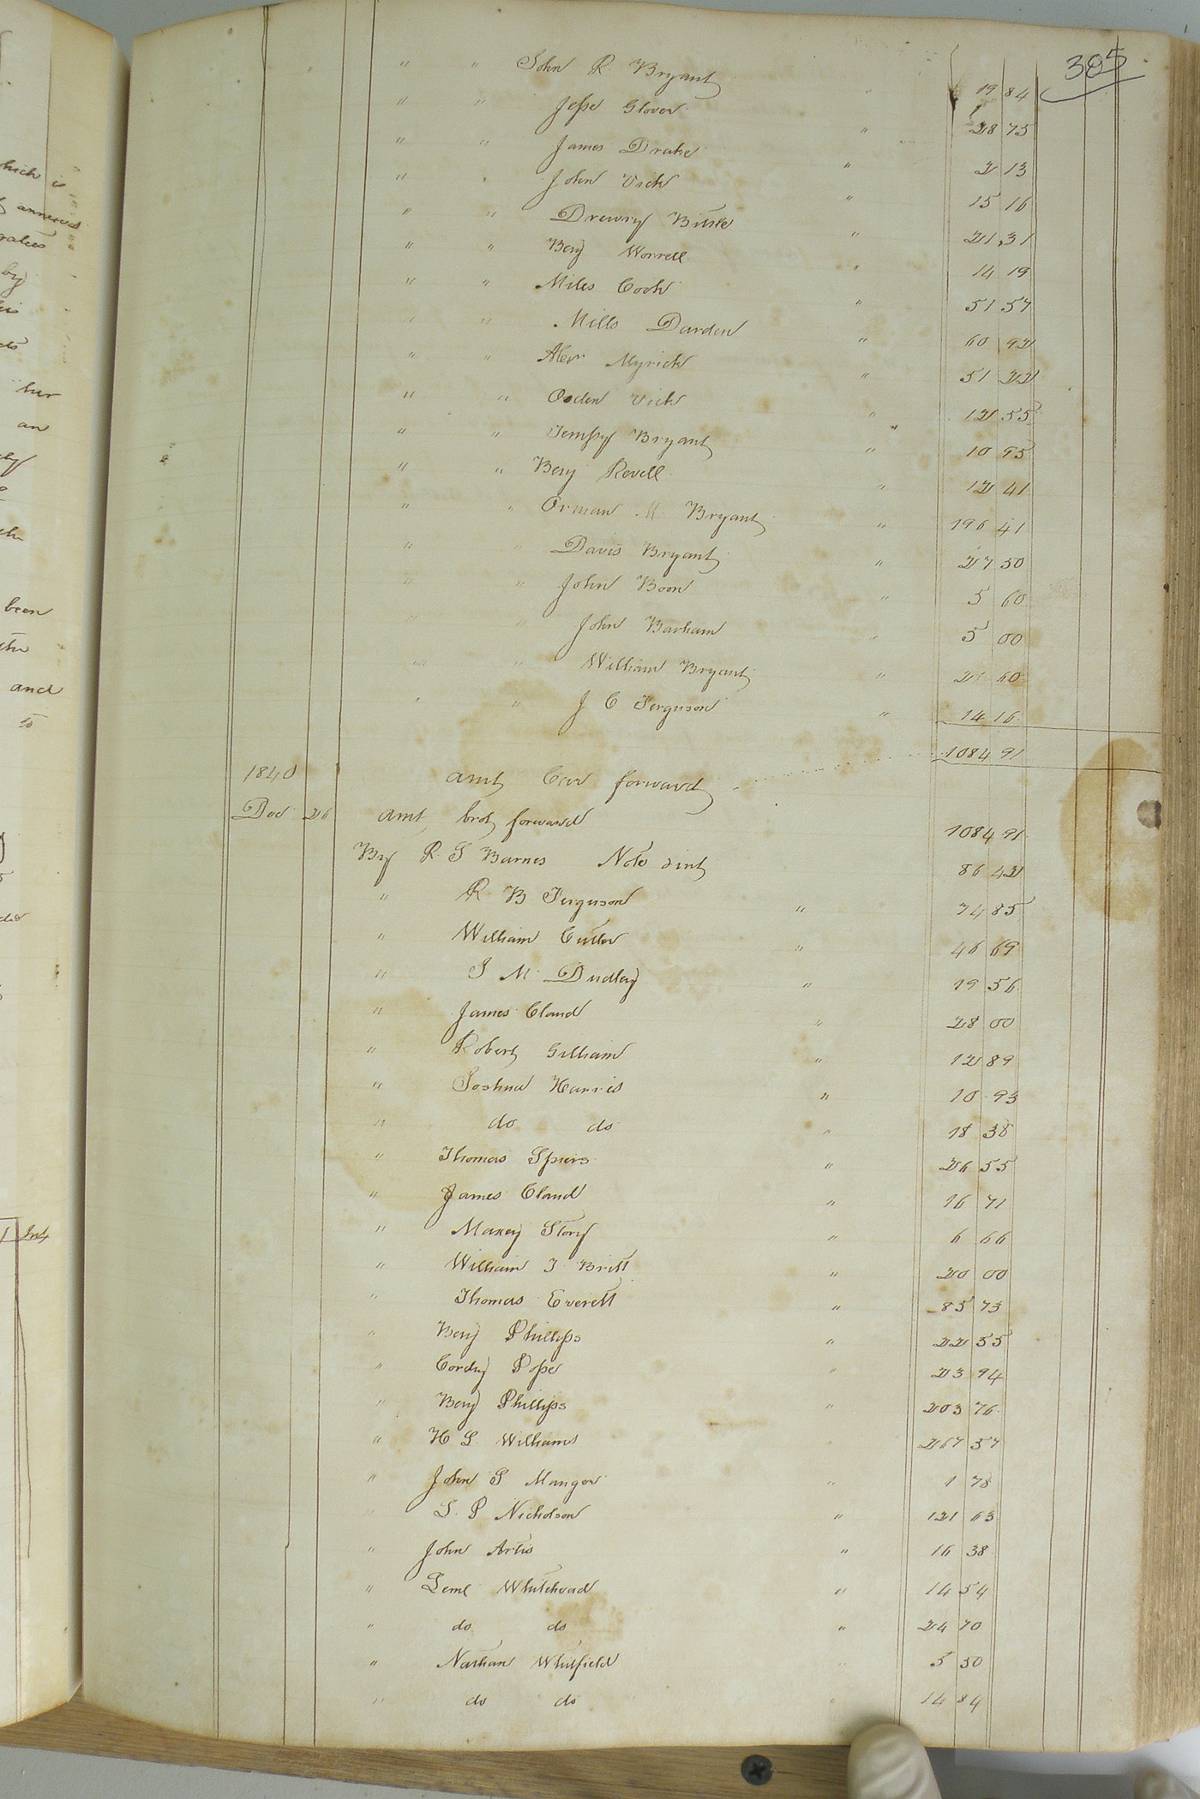 385
" " John R Bryant " 19 84
" " Jesse Glover " 28 75
" " James Drake " 2 13
" " John Vick " 15 16
" " Drewry Bittle " 21,31
" " Benj Worrell " 14 19
" " Miles Cook " 51 57
" " Mills Darden " 60 92
" " Alexr Myrick " 51 22
" " Osden Vick " 12 55
" " Tempy Bryant " 10 95
" " Benj Revell " 12 41
" " Orman M Bryant " 196 41
" " Davis Bryant " 27 50
" " John Boon " 5 60
" " John Barham " 5 00
" " William Bryant " 60
" " J C Ferguson " 14 16
1084 91
1840 amt Car forward
Dec 26 amt brot forward 1084 91
By R S Barnes Note & int 86 42
" R B Ferguson " 74 85
" William Cutler " 46 69
" S M Dudley " 19 56
" James Claud " 28 00
" Robert Gilliam " 12 89
" Joshua Harris " 10 93
" do do " 18 38
" Thomas Spiers " 26 55
" James Claud " 16 71
" Maxey Story " 6 66
" William J Britt " 20 00
" Thomas Everett " 85 73
" Benj Phillips " 22 55
" Cordy Pope " 23 94
" Benj Phillips " 203 76
" H S Williams 267 57
" John S Manger " 1 78
" S. P Nicholson " 121 63
" John Artis " 16 38
" Leml Whitehead " 14 54
" do do " 24 70
" Nathan Whitfield " 5 50
" do do " 14 84